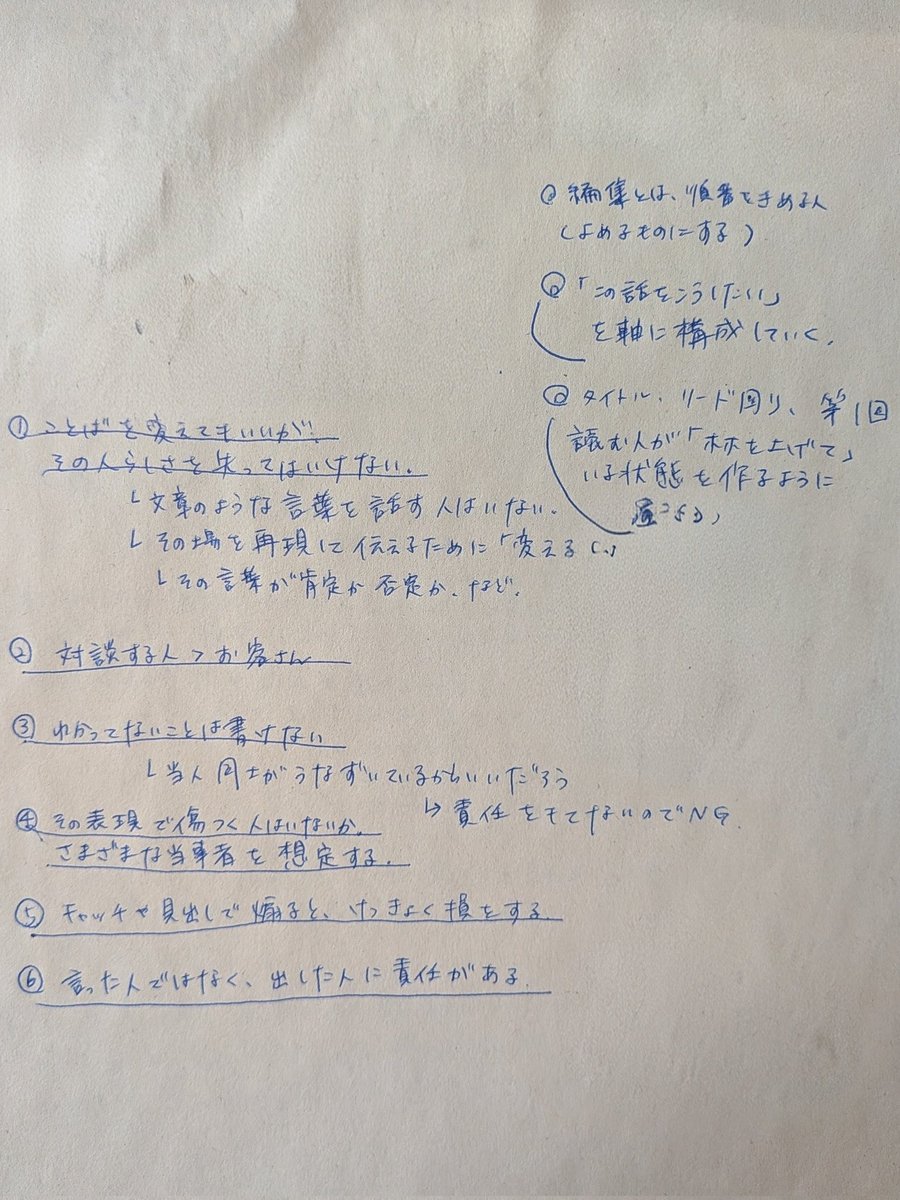 編集とは、順番をきめる人
(よめるものにする)
「この話をこうしたい」
を軸に構成していく。
タイトル、リード回り、第1回
読む人が「ホホを上げて」
いる状態を作るように
① ことばを変えてもいいが!
その人らしさを失ってはいけない。
└ 文章のような言葉を話す人はいない。
└ その場を再現して伝えるために「変える」
└ その言葉が肯定か否定か、など。
② 対談する人>お客さん
③ わかってないことは書けない
└ 当人同士がうなずいているからいいだろう
↳ 責任をもてないのでNG
④ その表現で傷つく人はいないか。
さまざまな当事者を想定する。
⑤ キャッチや見出しで煽ると、けっきょく損をする
⑥ 言った人ではなく、出した人に責任がある